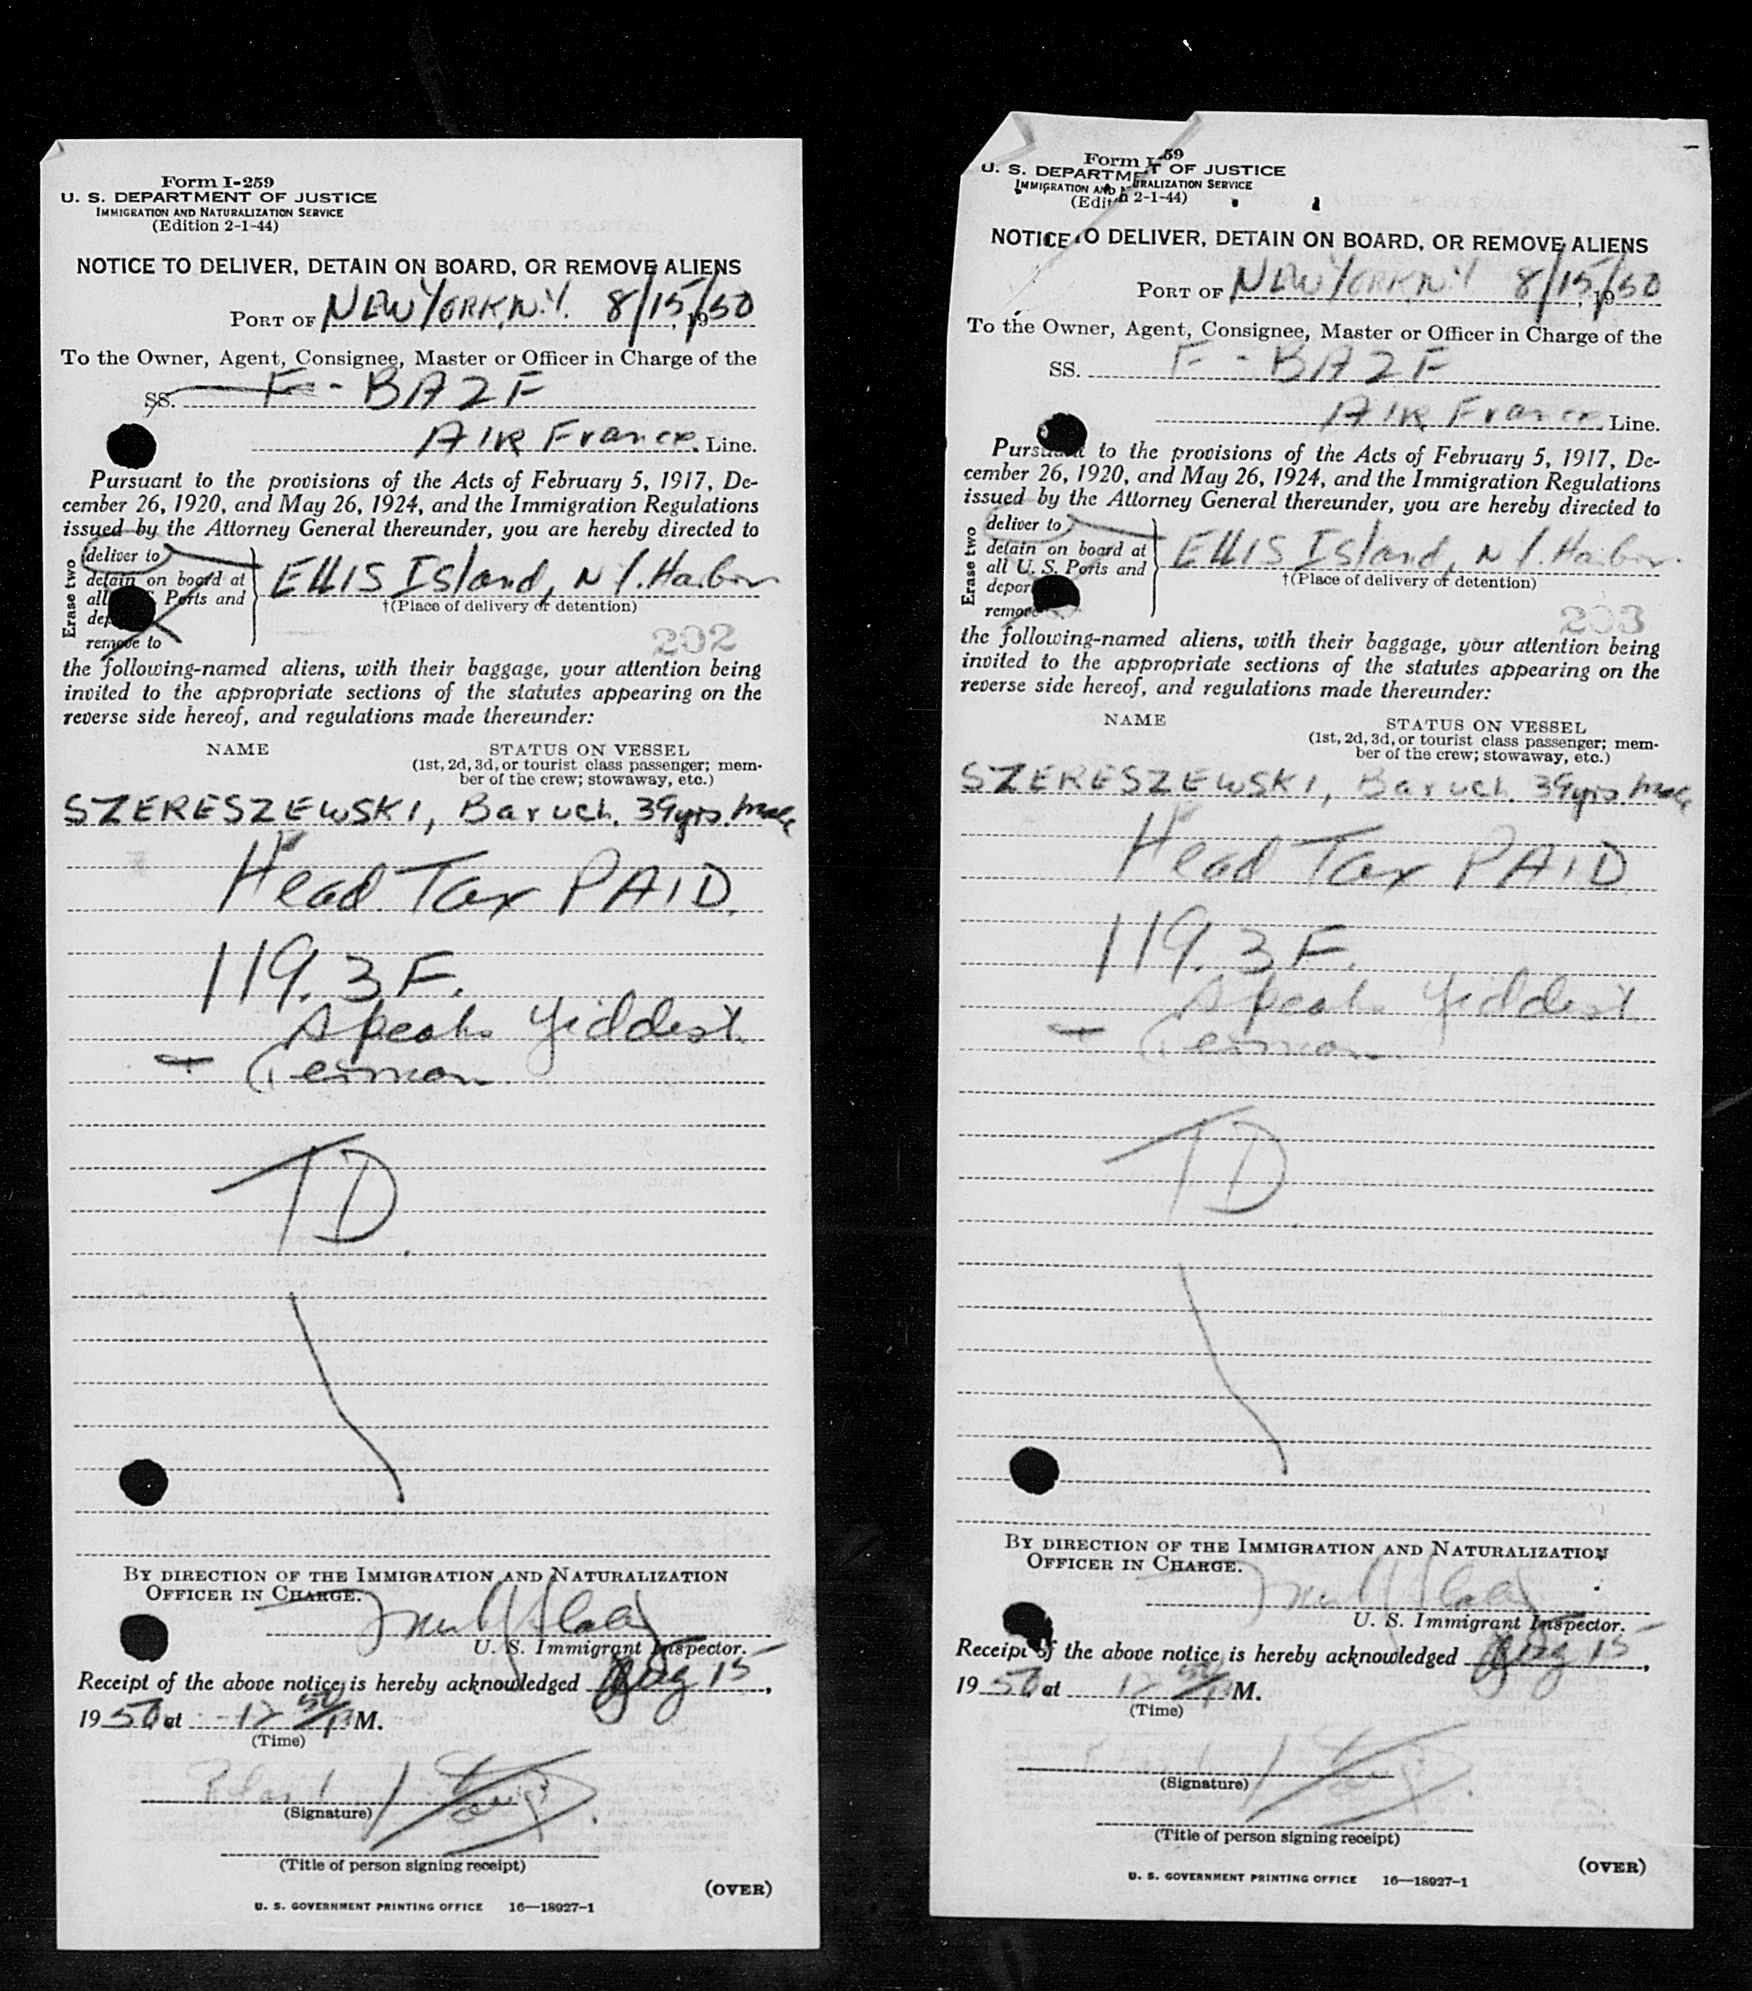 Form I-259
U. S. DEPARTMENT OF JUSTICE
IMMIGRATION AND NATURALIZATION SERVICE
(Edition 2-1-44)
NOTICE TO DELIVER, DETAIN ON BOARD, OR REMOVE ALIENS
PORT OF NEW YORK, N.Y. 8/15/50, 19
To the Owner, Agent, Consignee, Master or Officer in Charge of the
SS. F-BAZF
AIR France Line.
Pursuant to the provisions of the Acts of February 5, 1917, De-
cember 26, 1920, and May 26, 1924, and the Immigration Regulations
issued by the Attorney General thereunder, you are hereby directed to
Erase two
deliver to
detain on board at
all S. Ports and
dep
remove to
ELLIS Island, N Y. Harbor
†(Place of delivery or detention)
202
the following-named aliens, with their baggage, your attention being
invited to the appropriate sections of the statutes appearing on the
reverse side hereof, and regulations made thereunder:
NAME
STATUS ON VESSEL
(1st, 2d, 3d, or tourist class passenger; mem-
ber of the crew; stowaway, etc.)
SZERESZEWSKI, Baruch. 39yrs. male
Head Tax PAID.
119. 3 F.
Speaks Yiddish
+ German
TD.
BY DIRECTION OF THE IMMIGRATION AND NATURALIZATION
OFFICER IN CHARGE.
U. S. Immigrant Inspector.
Receipt of the above notice is hereby acknowledged Aug 15,
1950 at 12 50 P M.
(Time)
(Signature)
(Title of person signing receipt)
(OVER)
U. S. GOVERNMENT PRINTING OFFICE 16—18927-1
Form I-59
U. S. DEPARTMENT OF JUSTICE
IMMIGRATION AND NATURALIZATION SERVICE
(Edition 2-1-44)
NOTICE TO DELIVER, DETAIN ON BOARD, OR REMOVE ALIENS
PORT OF NEW YORK, N.Y. 8/15/50, 19
To the Owner, Agent, Consignee, Master or Officer in Charge of the
SS. F-BAZF
AIR France Line.
Pursuant to the provisions of the Acts of February 5, 1917, De-
cember 26, 1920, and May 26, 1924, and the Immigration Regulations
issued by the Attorney General thereunder, you are hereby directed to
Erase two
deliver to
detain on board at
all U. S. Ports and
depor
remove
ELLIS Island, N Y. Harbor.
†(Place of delivery or detention)
203
the following-named aliens, with their baggage, your attention being
invited to the appropriate sections of the statutes appearing on the
reverse side hereof, and regulations made thereunder:
NAME
STATUS ON VESSEL
(1st, 2d, 3d, or tourist class passenger; mem-
ber of the crew; stowaway, etc.)
SZERESZEWSKI, Baruch. 39yrs. male
Head Tax PAID
119. 3 F.
Speaks Yiddish
+ German.
TD.
BY DIRECTION OF THE IMMIGRATION AND NATURALIZATION
OFFICER IN CHARGE.
U. S. Immigrant Inspector.
Receipt of the above notice is hereby acknowledged Aug 15,
1950 at 12 50 P M.
(Time)
(Signature)
(Title of person signing receipt)
(OVER)
U. S. GOVERNMENT PRINTING OFFICE 16—18927-1